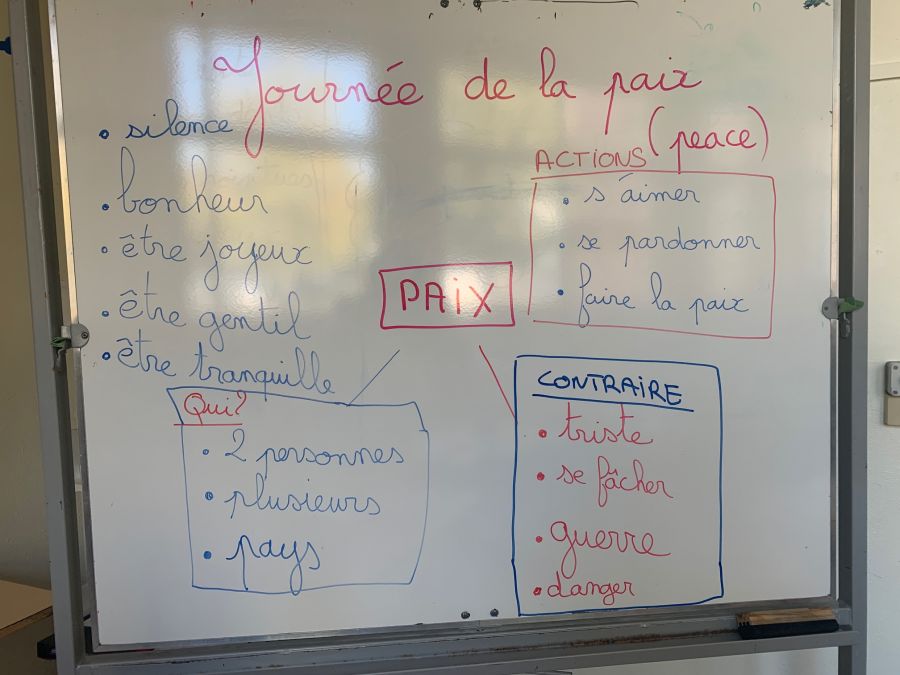 Journée de la paix
(peace)
• silence
• bonheur
• être joyeux
• être gentil
• être tranquille
ACTIONS
• s'aimer
• se pardonner
• faire la paix
PAIX
Qui?
• 2 personnes
• plusieurs
• pays
CONTRAIRE
• triste
• se fâcher
• guerre
• danger